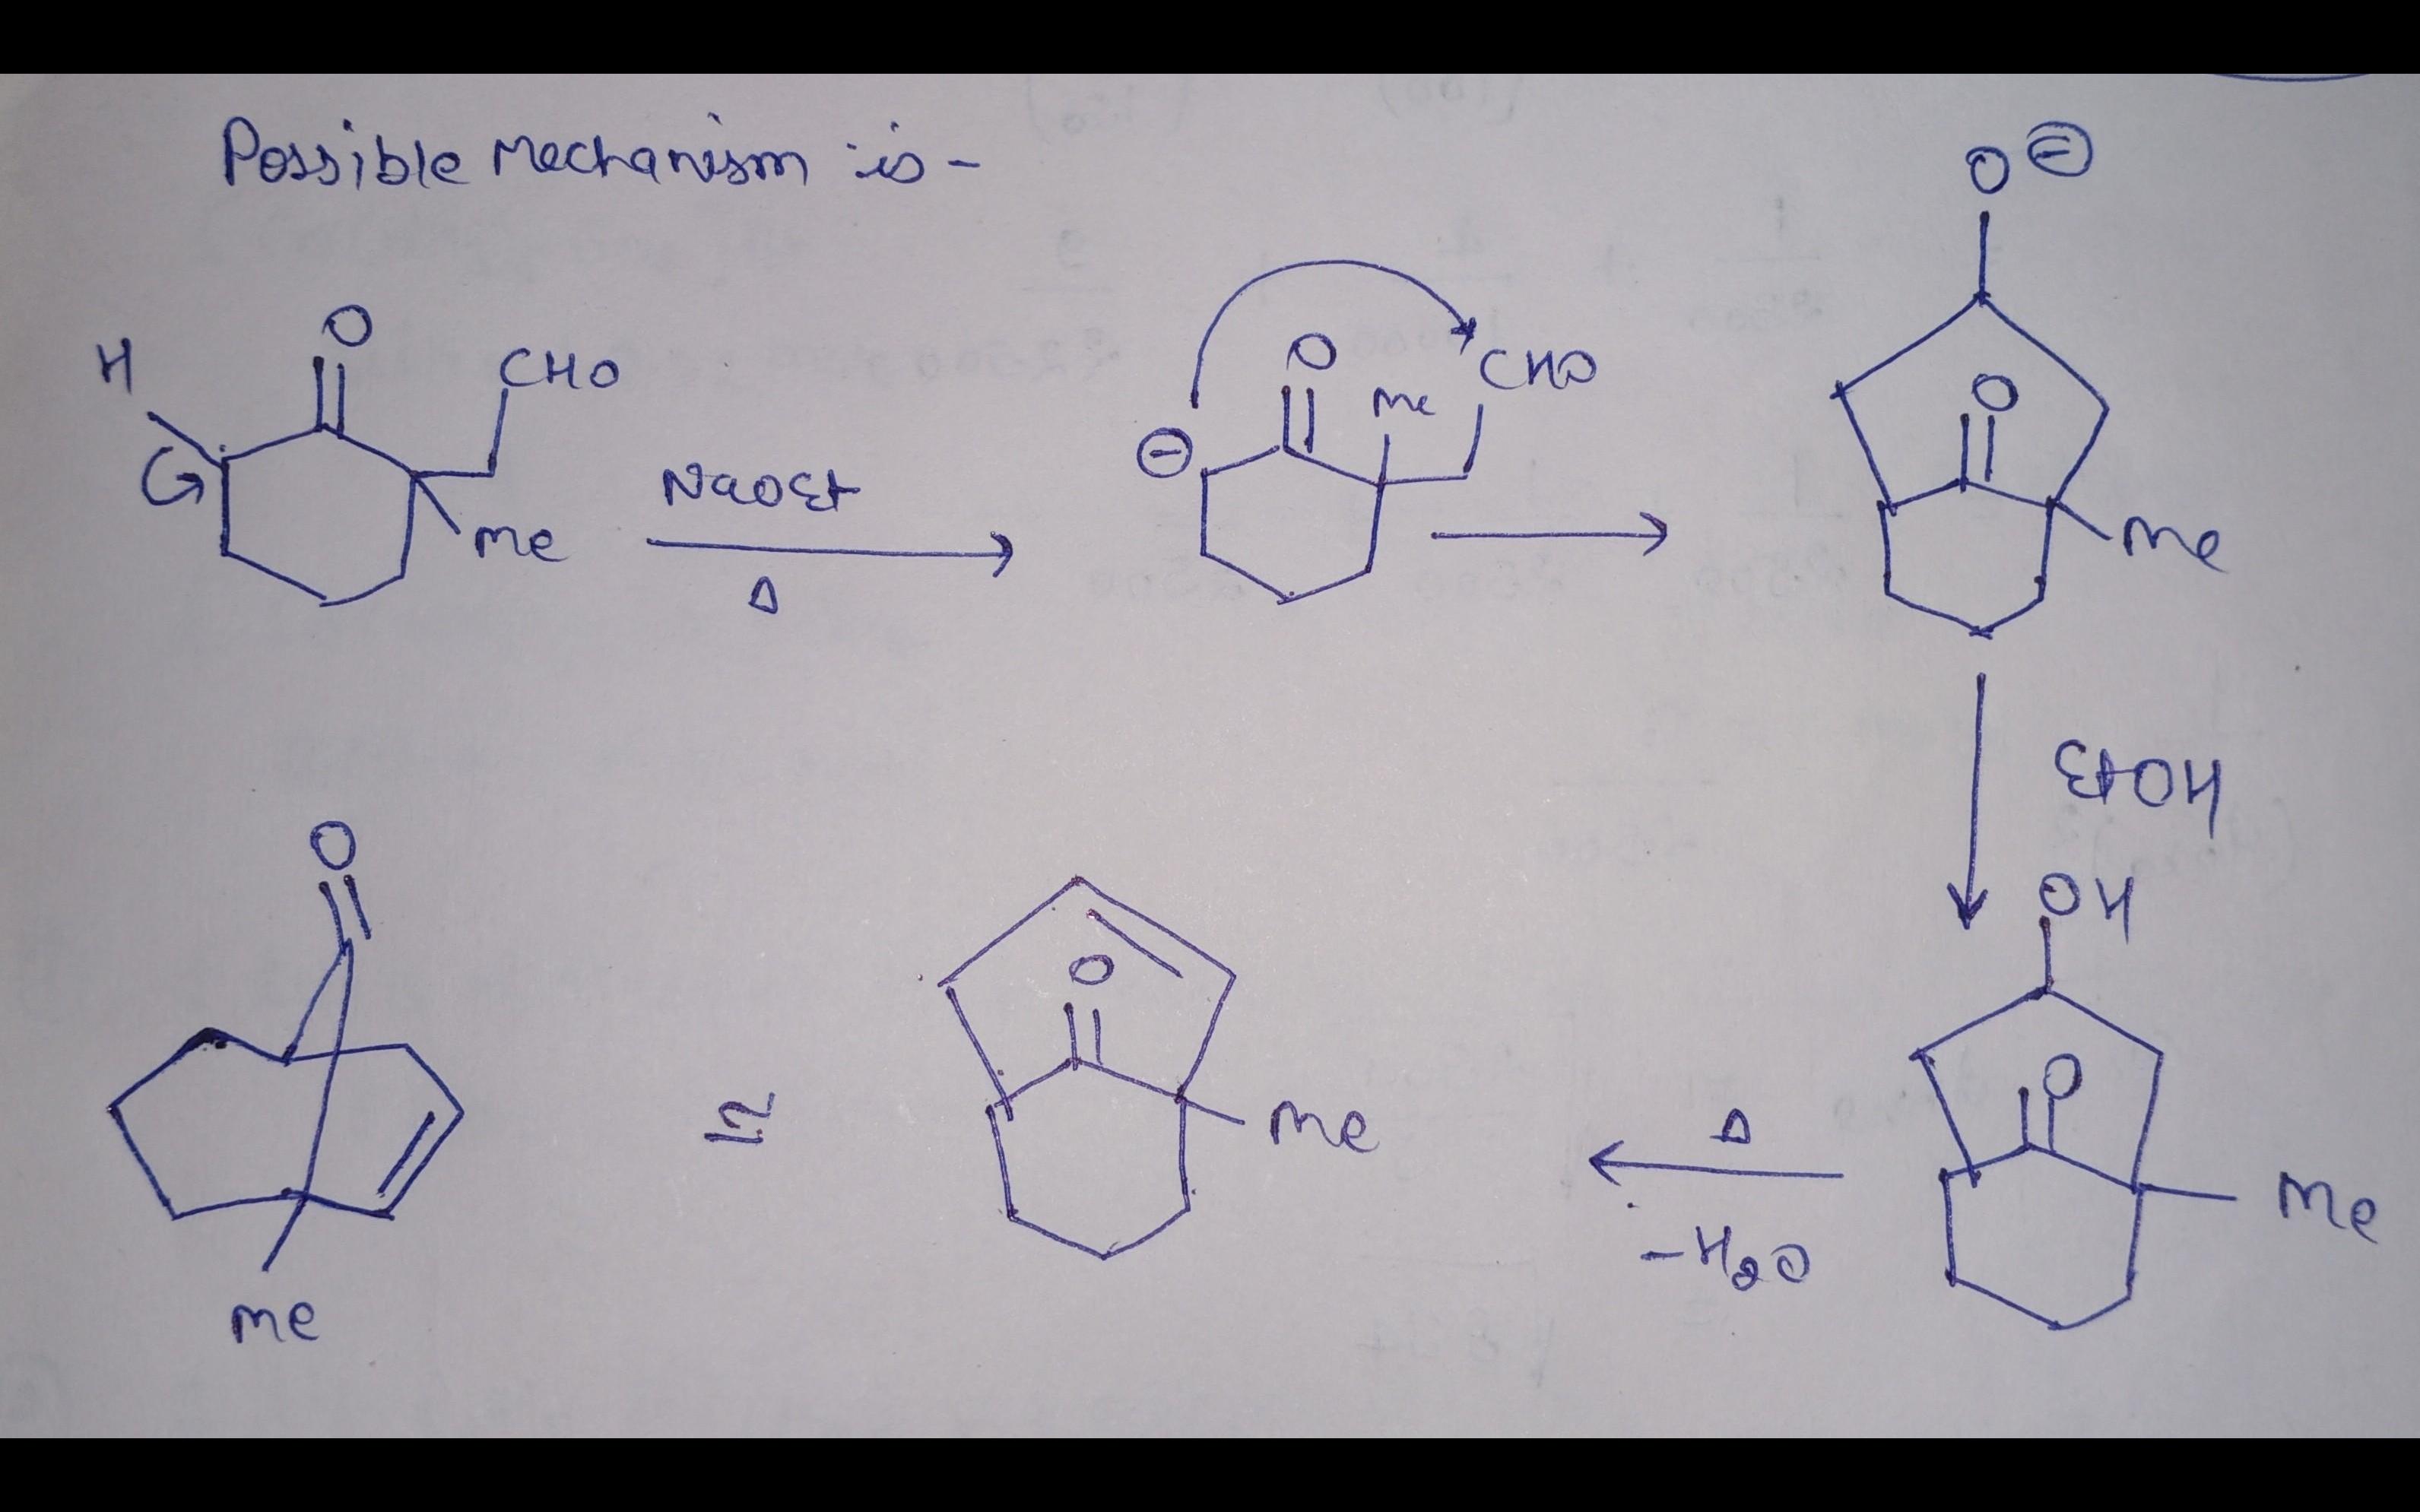 Possible mechanism is -
O ⊖
H
O
CHO
Me
NaOEt
Δ
⊖
O
Me
CHO
O
Me
EtOH
OH
O
Me
Δ
-H2O
O
Me
≈
O
Me